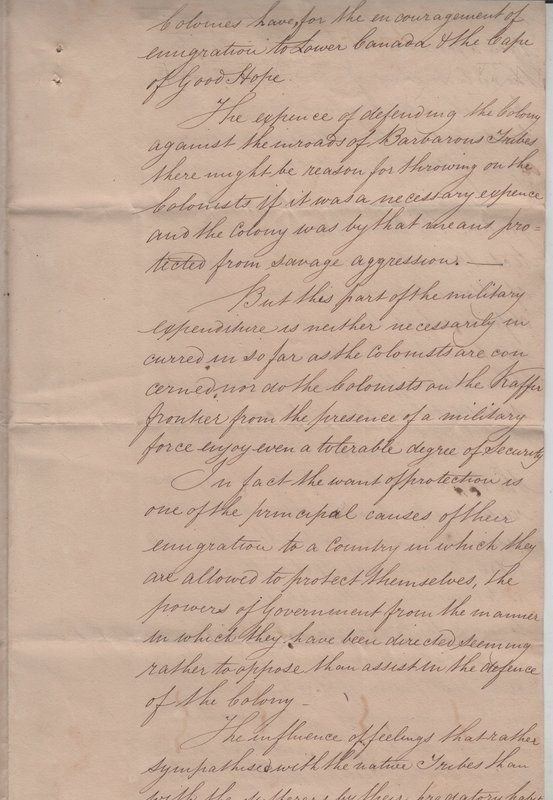 Colonies have, for the encouragement of
emigration to Lower Canada & the Cape
of Good Hope.
The expence of defending the Colony
against the inroads of Barbarous Tribes
there might be reason for throwing on the
Colonists if it was a necessary expence
and the Colony was by that means pro=
tected from savage aggression. —
But this part of the military
expenditure is neither necessarily in
curred in so far as the Colonists are con
cerned, nor do the Colonists on the Kaffer
frontier from the presence of a military
force enjoy even a tolerable degree of Security
In fact the want of protection is
one of the principal causes of their
emigration to a Country in which they
are allowed to protect themselves, the
powers of Government from the manner
in which they have been directed seeming
rather to oppose than assist in the defence
of the Colony —
The influence of feelings that rather
sympathised with the native Tribes than
with the sufferers by their predatory